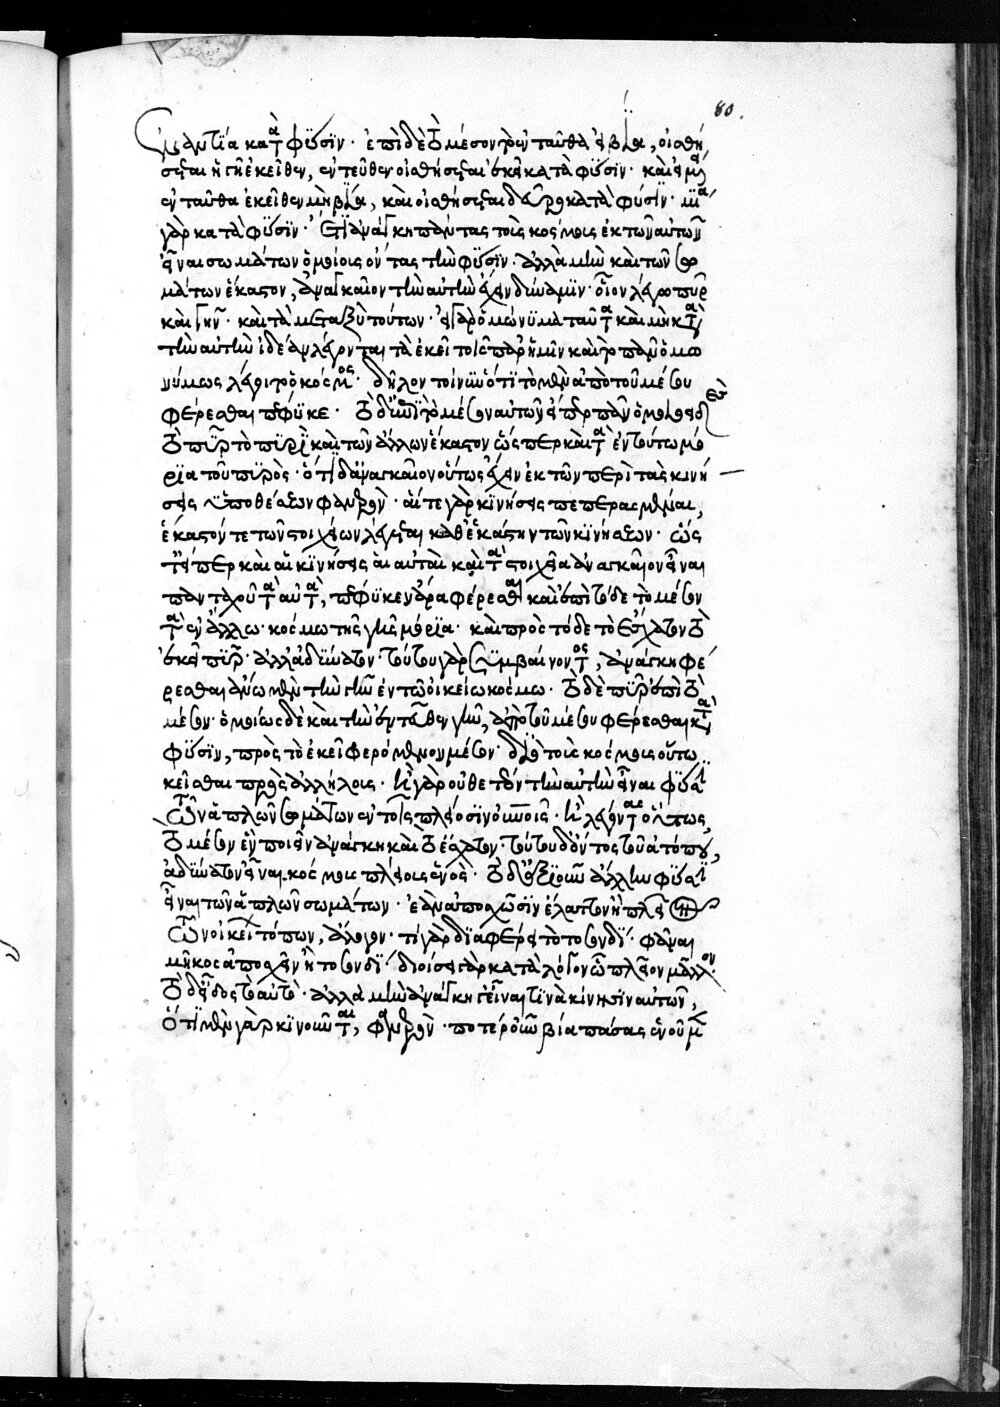 80.
ἐναντία κατὰ φύσιν· ἐπὶ δὲ τὸ μέσον γῆ ἐνταῦθα εἰ βία, οἰσθή
σεται ἡ γῆ ἐκεῖθεν, ἐντεῦθεν οἰσθήσεται ἐκεῖ κατὰ φύσιν· καὶ εἰ μένει
ἐνταῦθα ἐκεῖθεν μὴ βία, καὶ οἰσθήσεται δεῦρο κατὰ φύσιν· μία
γὰρ κατὰ φύσιν· ἔτι ἀνάγκη πάντας τοὺς κόσμους ἐκ τῶν αὐτῶν
εἶναι σωμάτων ὁμοίους ὄντας τὴν φύσιν. ἀλλὰ μὴν καὶ τῶν σω
μάτων ἕκαστον, ἀναγκαῖον τὴν αὐτὴν ἔχειν δύναμιν· οἷον λέγω πῦρ
καὶ γῆν· καὶ τὰ μεταξὺ τούτων· εἰ γὰρ ὁμώνυμα ταῦτα καὶ μὴ κατὰ
τὴν αὐτὴν ἰδέαν λέγονται τὰ ἐκεῖ τοῖς παρ' ἡμῖν καὶ τὸ πᾶν ὁμω
νύμως λέγοιτο κόσμος· δῆλον τοίνυν ὅτι τὸ μὲν ἀπὸ τοῦ μέσου
φέρεσθαι πέφυκε· τὸ δ' ἐπὶ τὸ μέσον αὐτῶν εἴπερ πᾶν ὁμοειδὲς
τὸ πῦρ τῷ πυρὶ καὶ τῶν ἄλλων ἕκαστον ὥσπερ καὶ τὰ ἐν τούτῳ μό
ρια τοῦ πυρός· ὅτι δ' ἀναγκαῖον οὕτως ἔχειν ἐκ τῶν περὶ τὰς κινή
σεις ὑποθέσεων φανερόν· αἵ τε γὰρ κινήσεις πεπερασμέναι,
ἕκαστόν τε τῶν στοιχείων λέγεται καθ' ἑκάστην τῶν κινήσεων· ὥς
τ' εἴπερ καὶ αἱ κινήσεις αἱ αὐταὶ καὶ τὰ στοιχεῖα ἀναγκαῖον εἶναι
πανταχοῦ ταὐτά, πέφυκεν ἄρα φέρεσθαι καὶ ἐπὶ τόδε τὸ μέσον
τὰ ἐν ἄλλῳ κόσμῳ τῆς γῆς μόρια· καὶ πρὸς τόδε τὸ ἔσχατον τὸ
ἐκεῖ πῦρ· ἀλλ' ἀδύνατον· τούτου γὰρ συμβαίνοντος, ἀνάγκη φέ
ρεσθαι ἄνω μὲν τὴν γῆν ἐν τῷ οἰκείῳ κόσμῳ· τὸ δὲ πῦρ ἐπὶ τὸ
μέσον· ὁμοίως δὲ καὶ τὴν ἐντεῦθεν γῆν, ἀπὸ τοῦ μέσου φέρεσθαι κατὰ
φύσιν, πρὸς τὸ ἐκεῖ φερομένην μέσον· διὰ τὸ τοὺς κόσμους οὕτω
κεῖσθαι πρὸς ἀλλήλους· ἢ γὰρ οὐ θετέον τὴν αὐτὴν εἶναι φύσιν
τῶν ἁπλῶν σωμάτων ἐν τοῖς πλείοσιν οὐρανοῖς· ἢ λέγοντας οὕτως,
τὸ μέσον ἓν ποιεῖν ἀνάγκη καὶ τὸ ἔσχατον· τούτου δ' ὄντος τοῦ ἀτόπου,
ἀδύνατον εἶναι κόσμους πλείους ἑνός· τὸ δ' ἀξιοῦν ἄλλην φύσιν
εἶναι τῶν ἁπλῶν σωμάτων· ἐὰν ἀποσχῶσιν ἔλαττον ἢ πλεῖον
τῶν οἰκείων τόπων, ἄλογον· τί γὰρ διαφέρει τὸ τοσονδὶ φάναι
μῆκος ἀποσχεῖν ἢ τοσονδί· διοίσει γὰρ κατὰ λόγον ᾧ πλεῖον μᾶλλον·
τὸ δ' εἶδος τὸ αὐτό· ἀλλὰ μὴν ἀνάγκη γ' εἶναί τινα κίνησιν αὐτῶν,
ὅτι μὲν γὰρ κινοῦνται, φανερόν· πότερον οὖν βίᾳ πάσας ἐροῦμεν